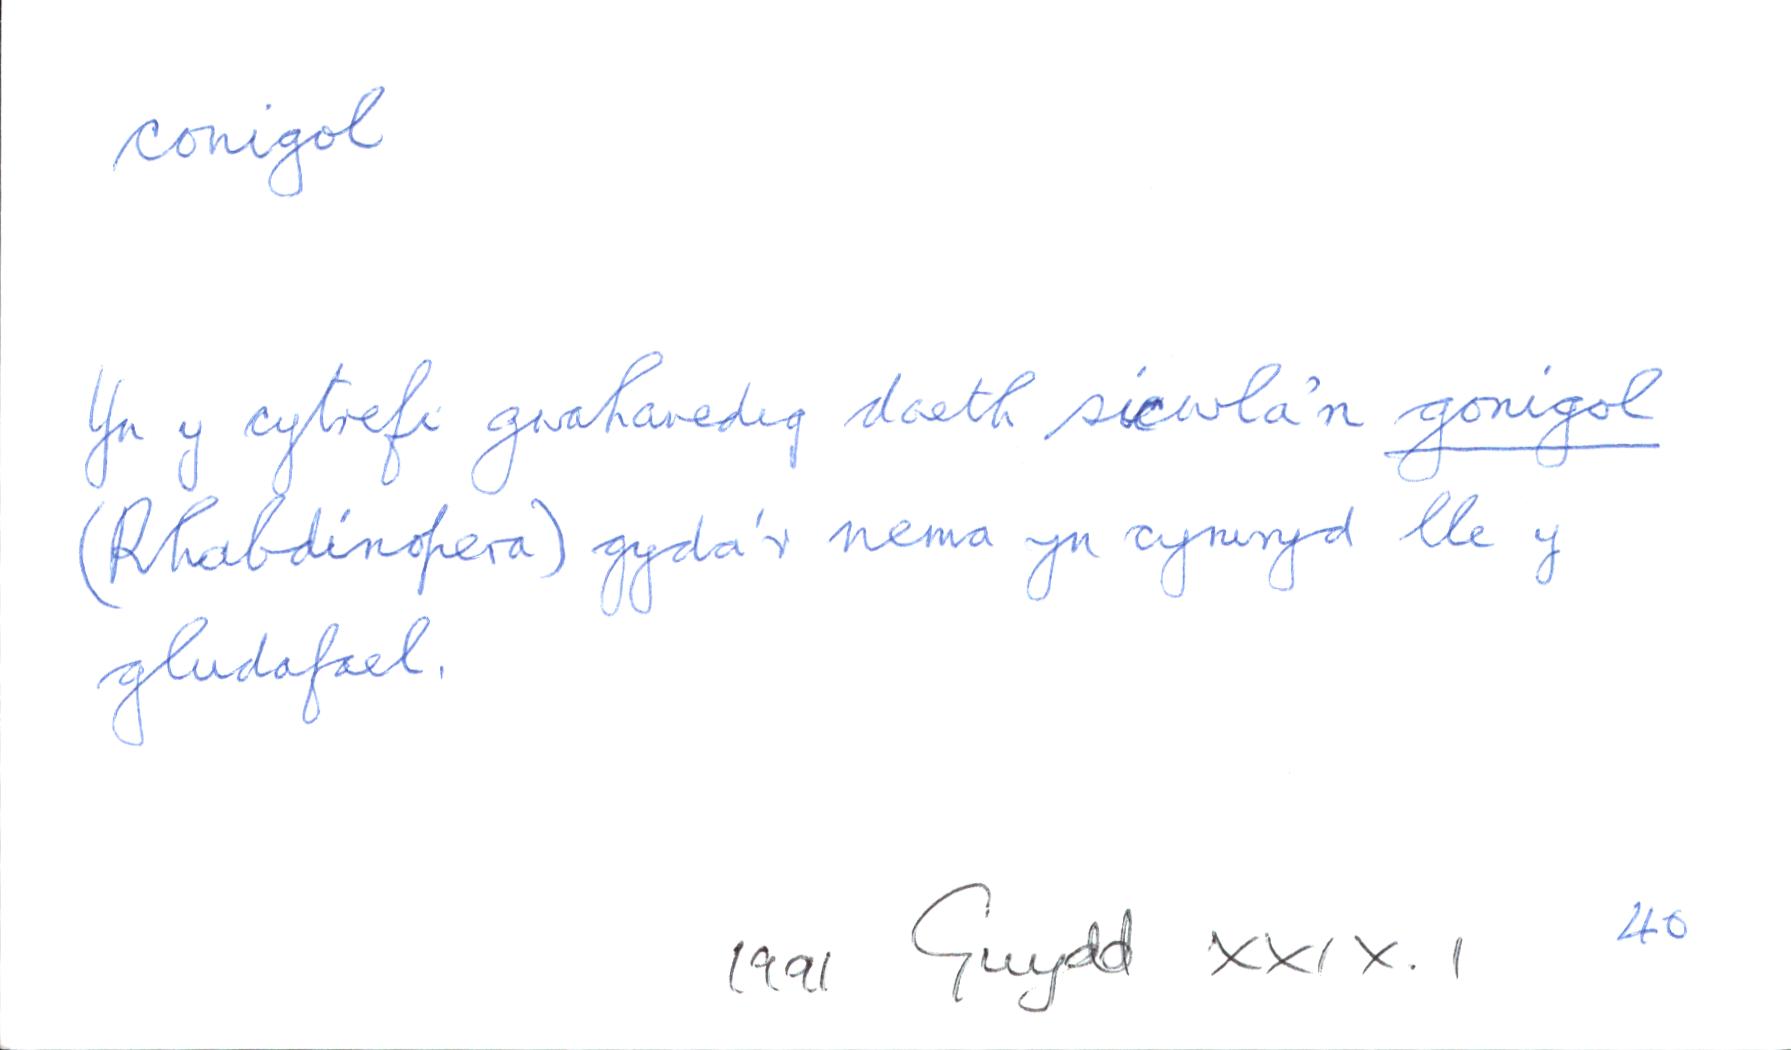 conigol
Yn y cytrefi gwahanedig daeth sicwla'n gonigol
(Rhabdinopera) gyda'r nema yn cymryd lle y
gludafael.
1991 Gwydd XXIX. 1 40